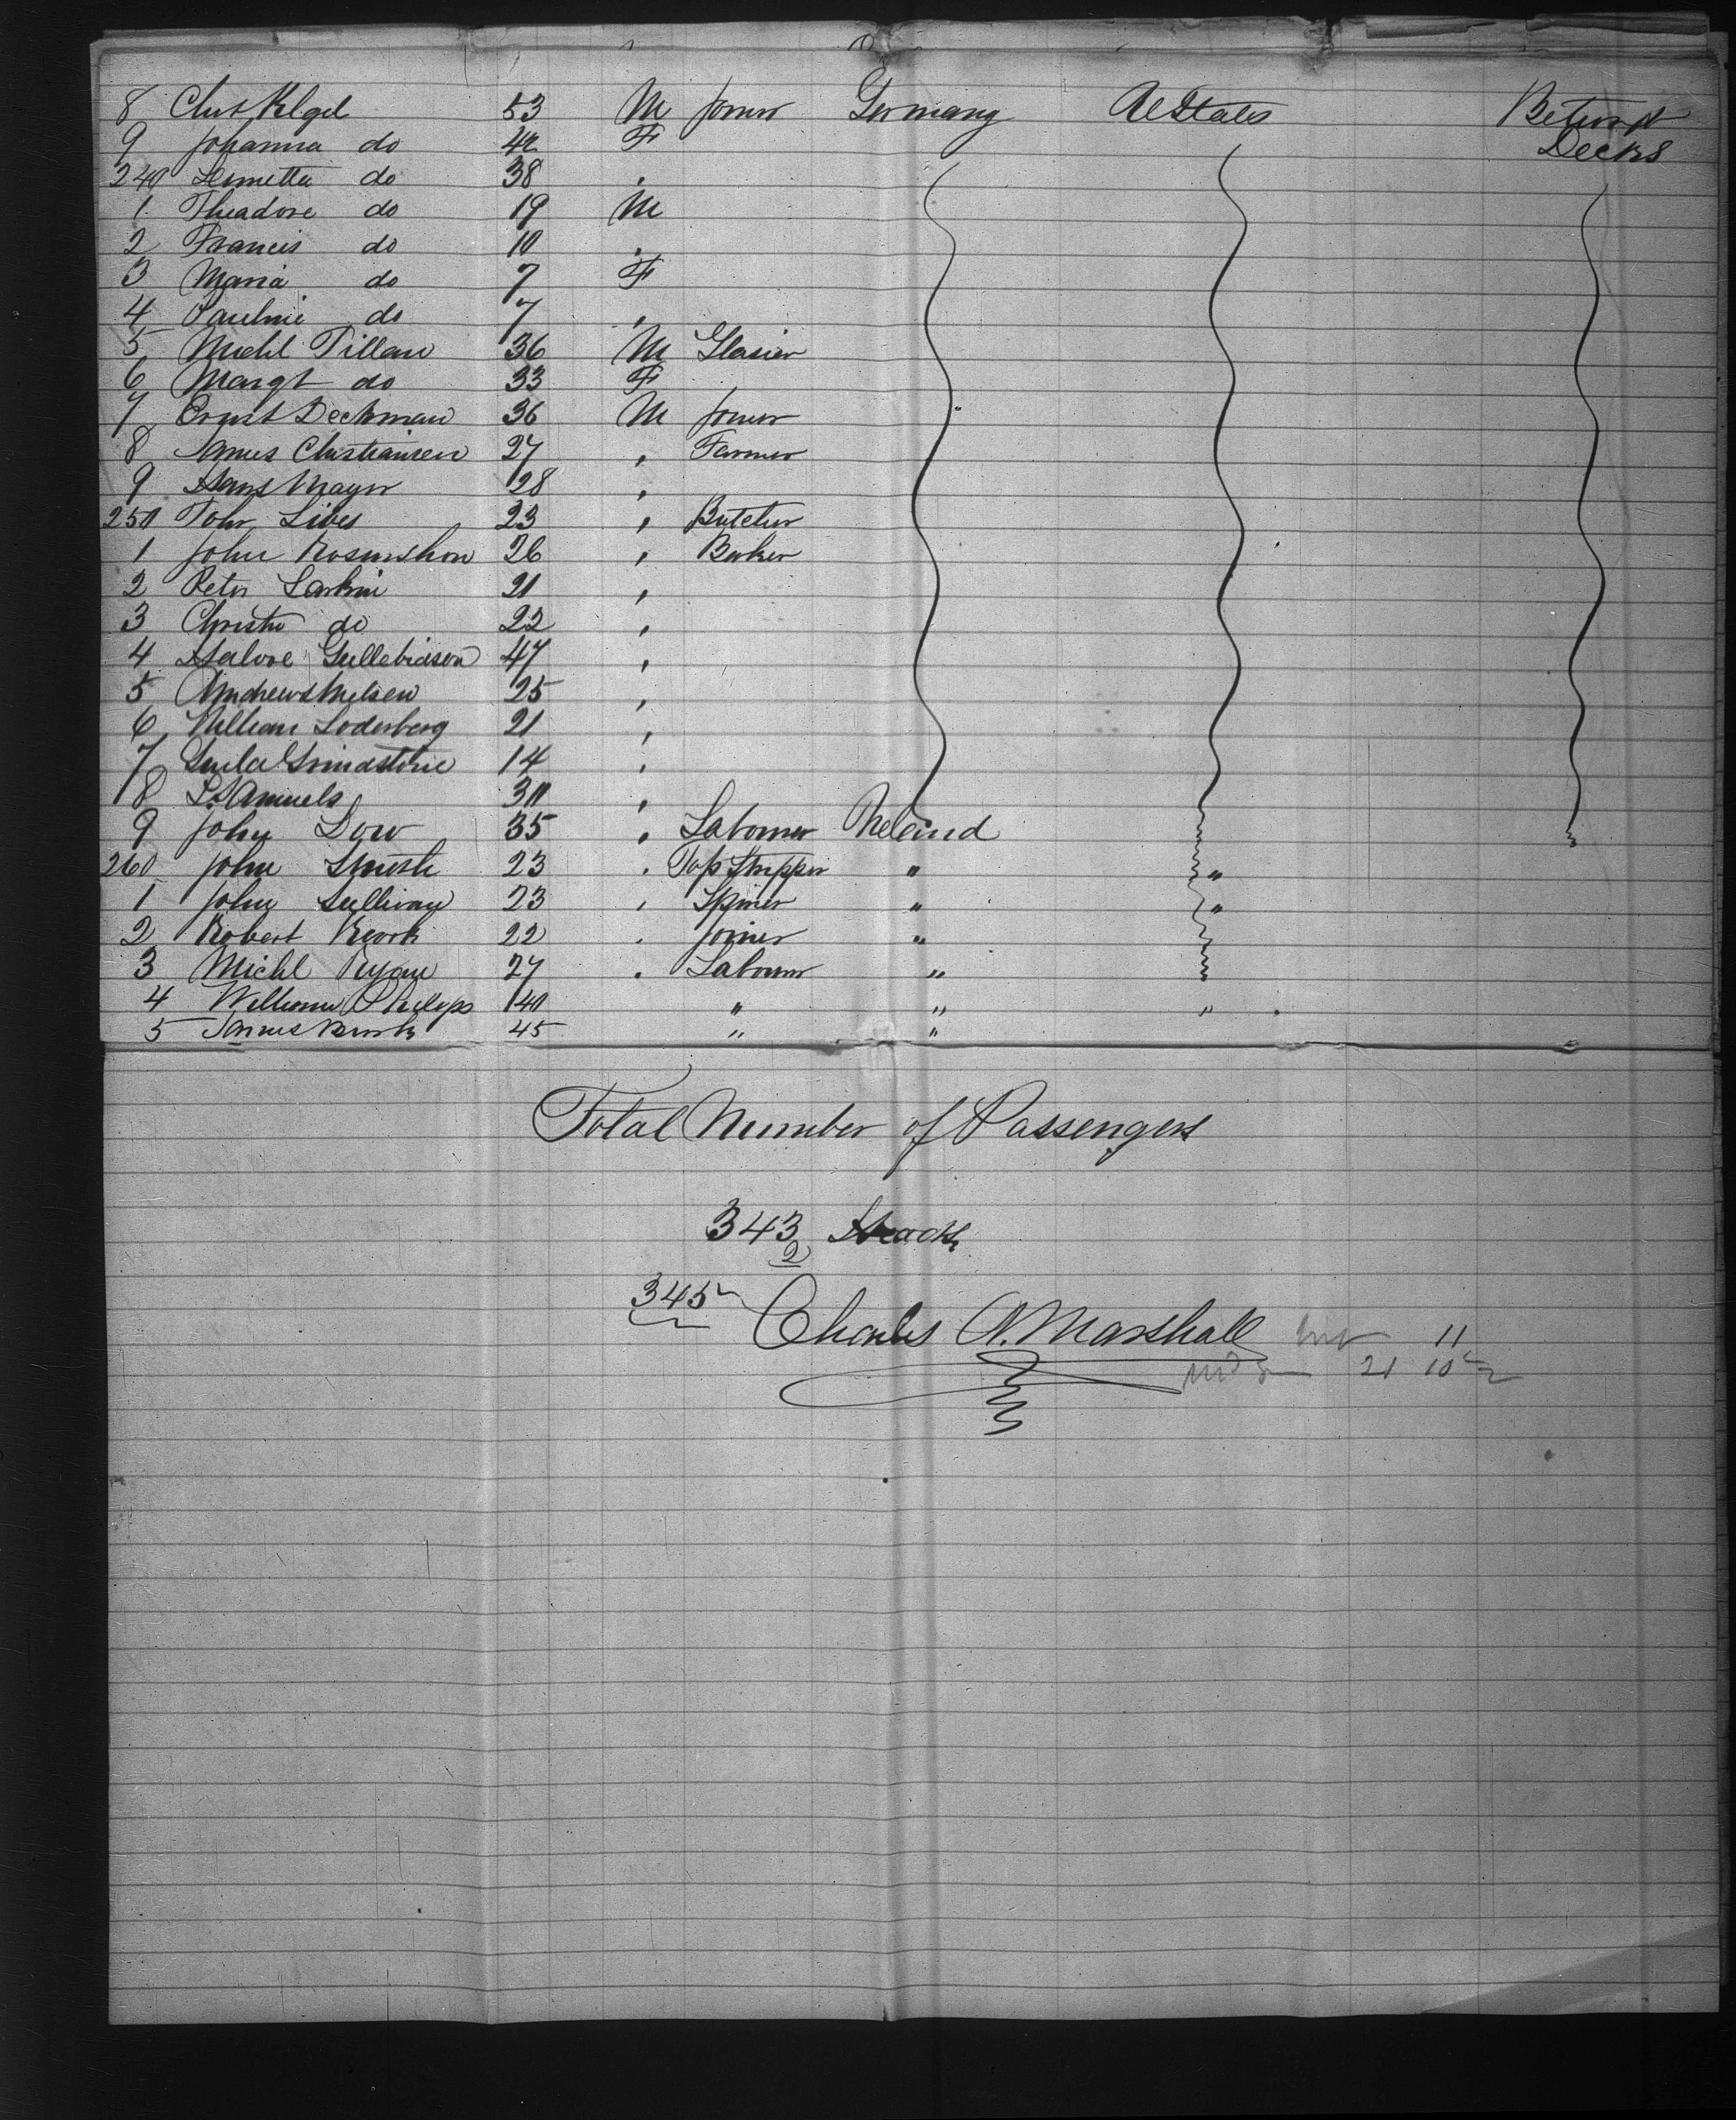 8 Chst Klgel 53 M Joiner Germany U States Betwn
9 Johanna do 42 F Decks
240 do 38 "
1 Theadore do 19 M
2 Francis do 10 "
3 Maria do 7 F
4 Pauline do 7 "
5 Michl Tillan 36 M Glasier
6 Margt do 33 F
7 Ernst Deckman 36 M Joiner
8 James Christiansen 27 " Farmer
9 Hans Mayer 28 "
250 Libes 23 " Butcher
1 John 26 " Baker
2 Peter Larkin 21 "
3 Christn do 22 "
4 Halvoe 47 "
5 Andrew Nielsen 25 "
6 William Soderberg 21 "
7 14 "
8 S. Samuels 30 "
9 John Dow 35 " Labourer Ireland
260 John Smith 23 " "  "
1 John Sullivan 23 " Spiner " "
2 Robert 22 " Joiner "
3 Michl Ryan 27 " Labourer "
4 William Philips 40 " " "
5 James 45 " "
Total Number of Passengers
343
2
345
Charles A. Marshall 11
21 10